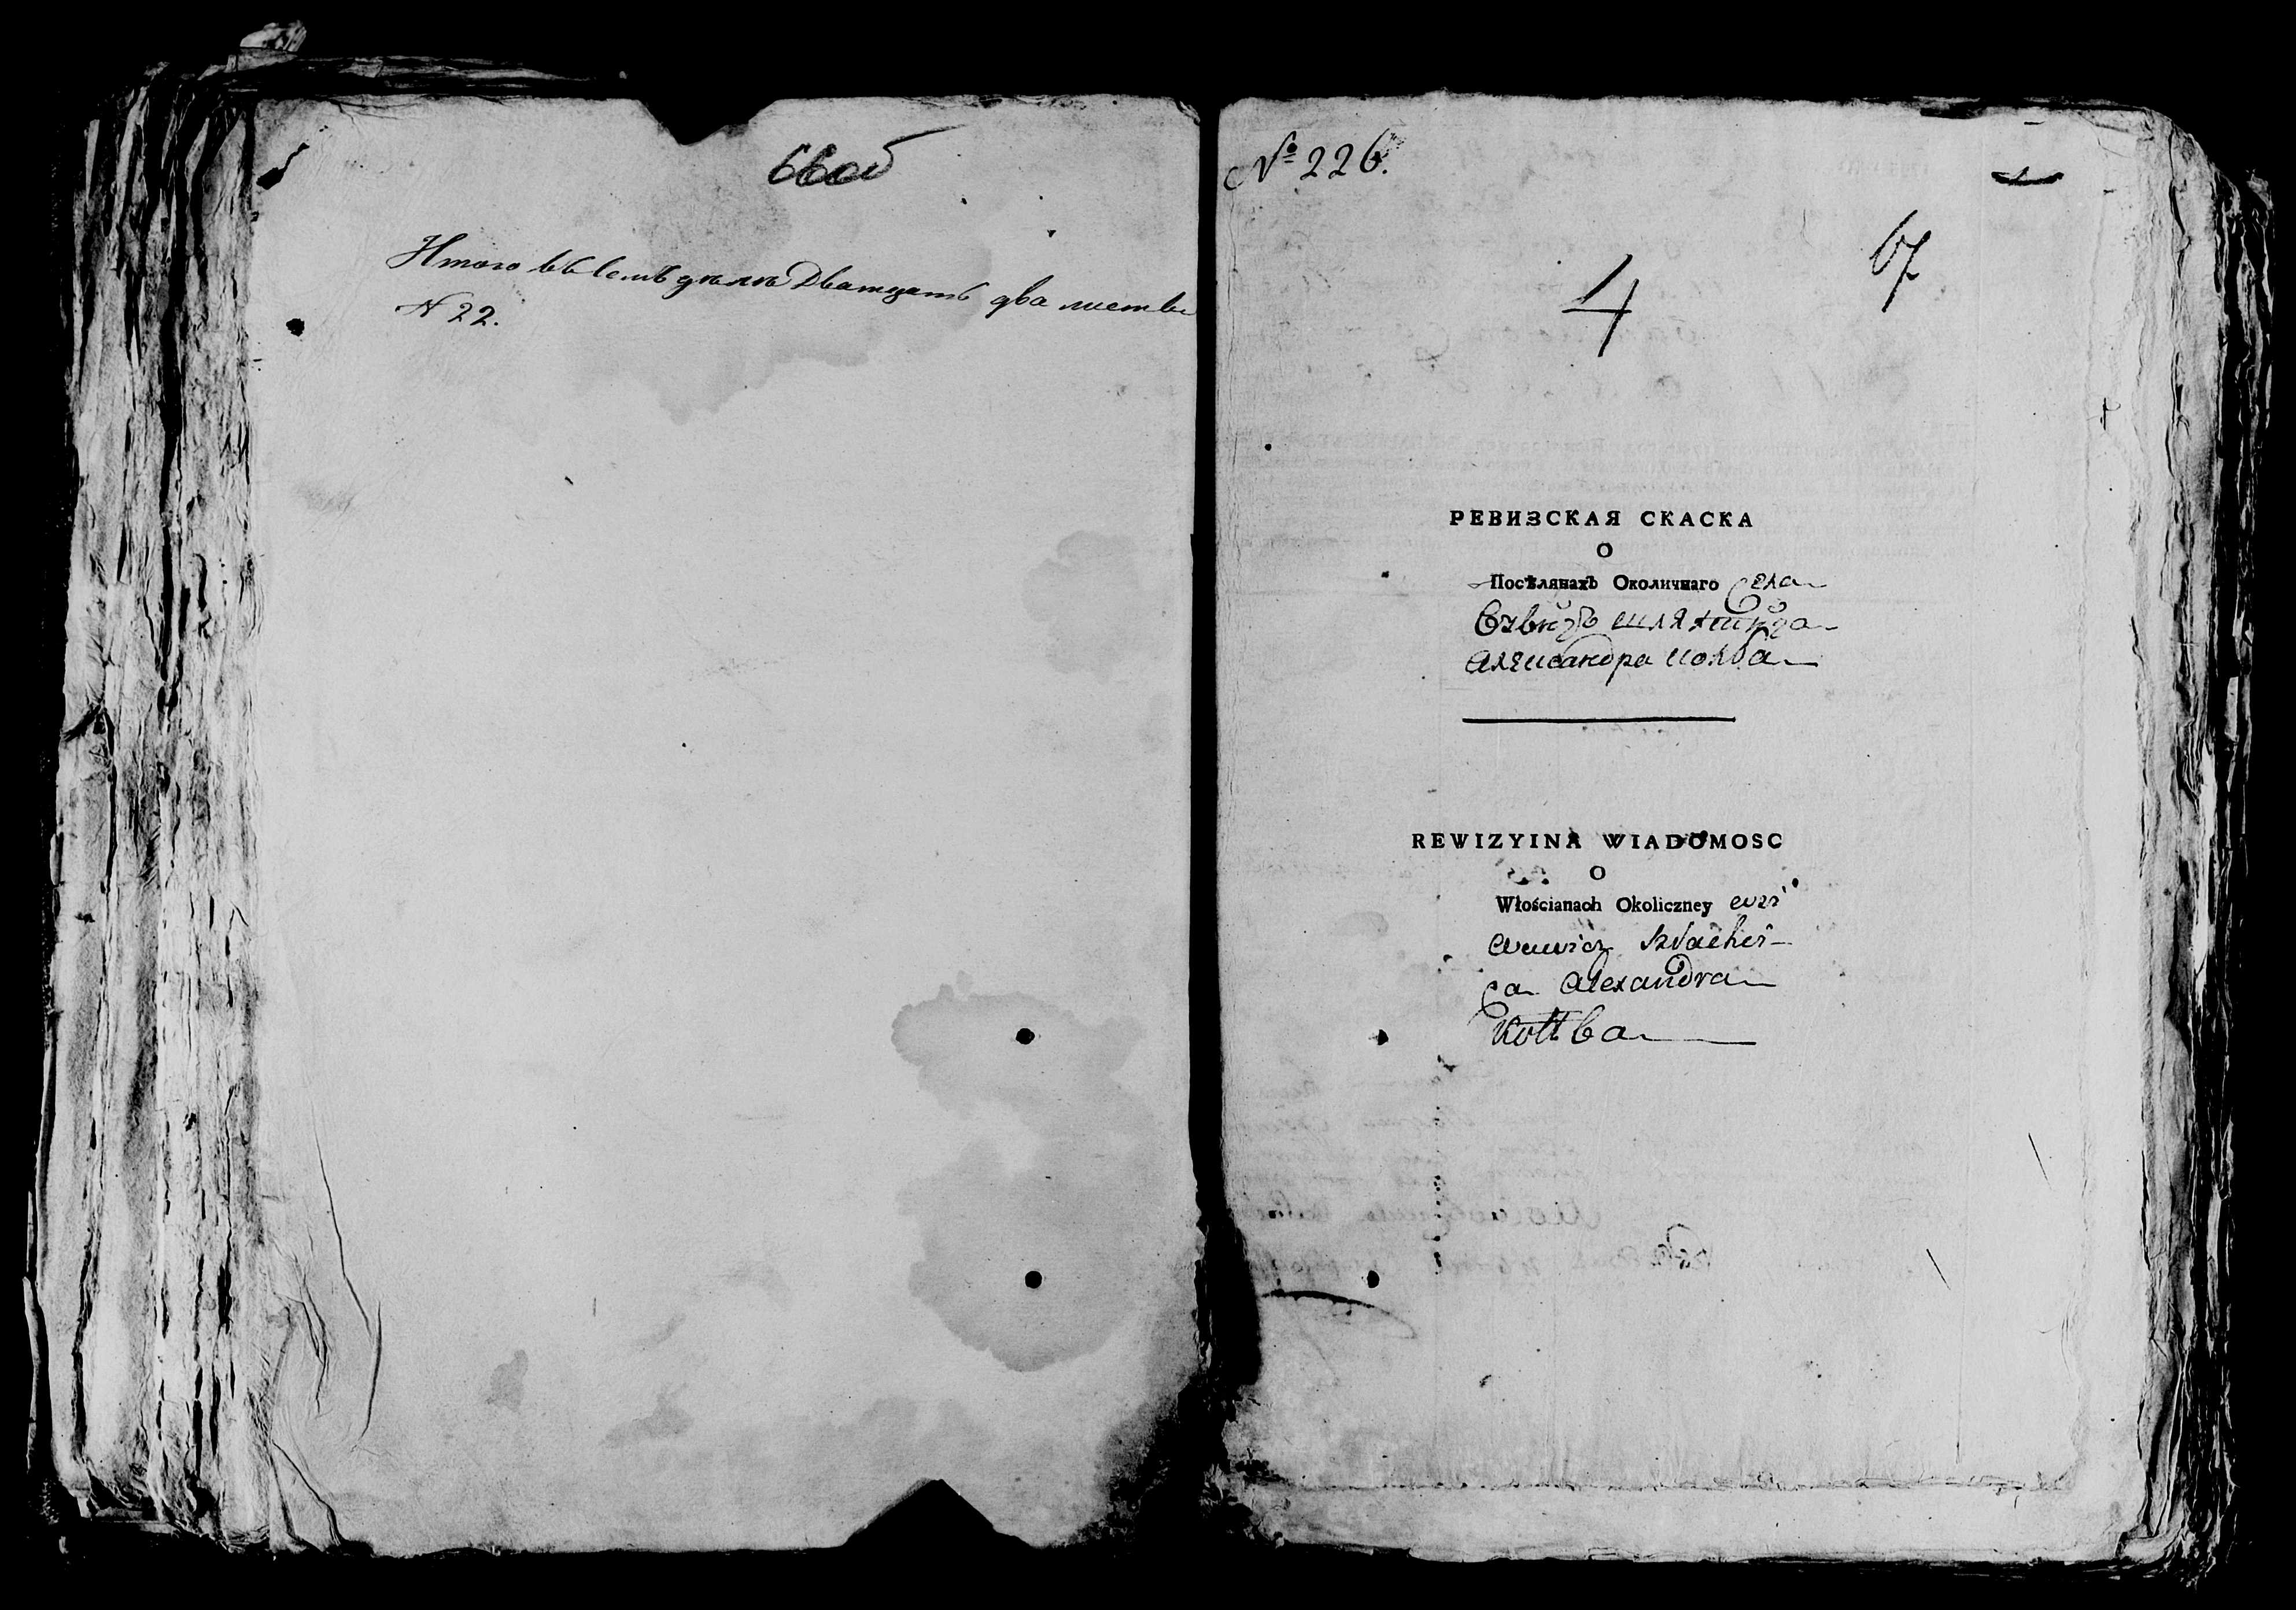 66об
Итого въ семъ дѣлѣ Дватцать два листве
№ 22.
№ 226.
1
67
4
РЕВИЗСКАЯ СКАСКА
О
Посѣлянахъ Околичнаго Села
шляхтица
Александра Колба
REWIZYINA WIADOMOSC
O
Włościanach Okoliczney wsi
Szlachci-
ca Alexandra
Kołłba